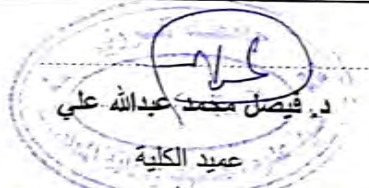 د. فيصل محمد عبدالله علي
عميد الكلية